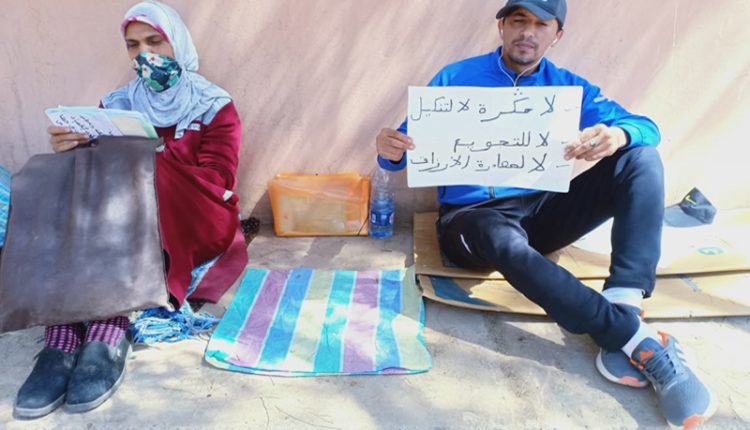 - لا حڭرة لا لتنكيل
- لا للتجويع
- لا لمصادرة الارزاق